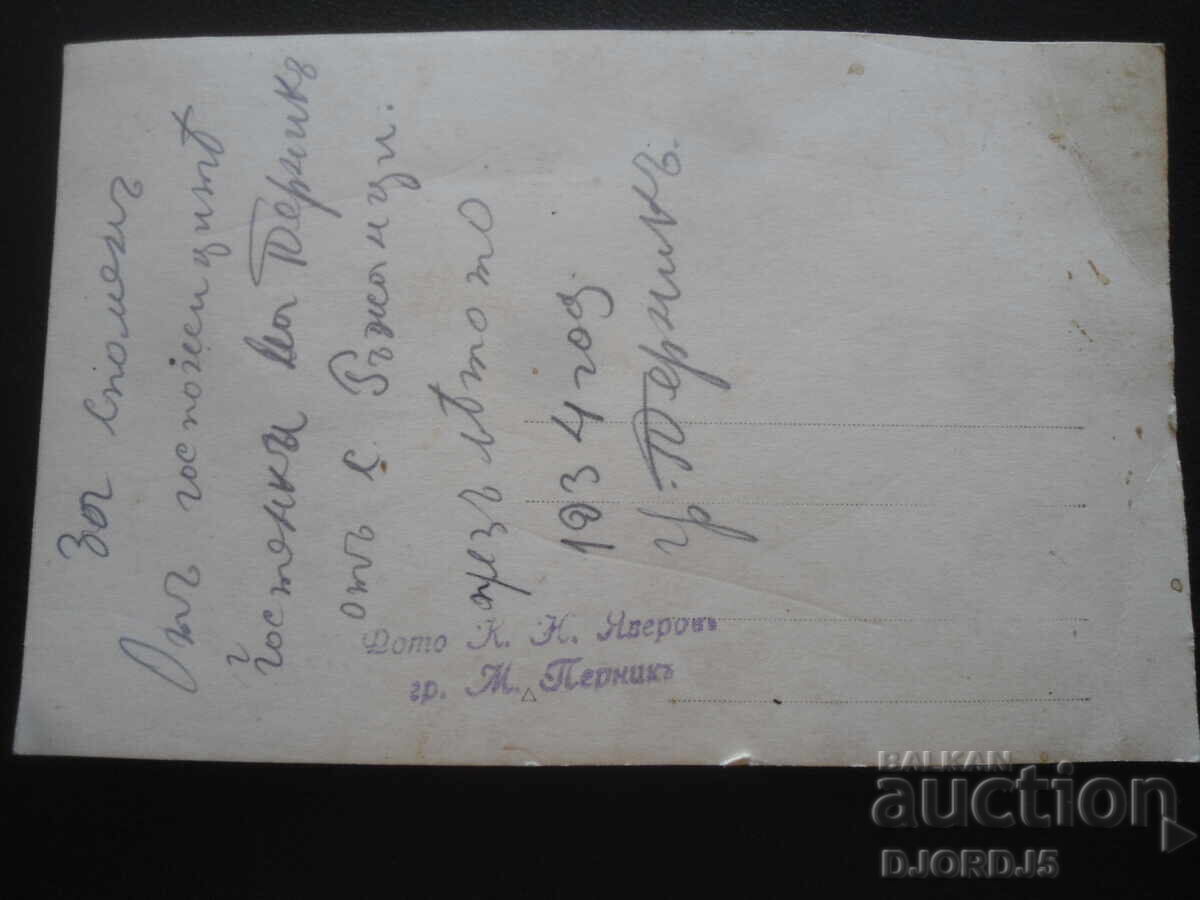 За споменъ
Отъ госпожицитѣ
гостенки на Перникъ
отъ с. Ръжанци.
презъ лѣтото
1934 год.
гр. Перникъ.
Фото К. Н. Яверовъ
гр. М. Перникъ
BALKAN
auction
DJORDJ5